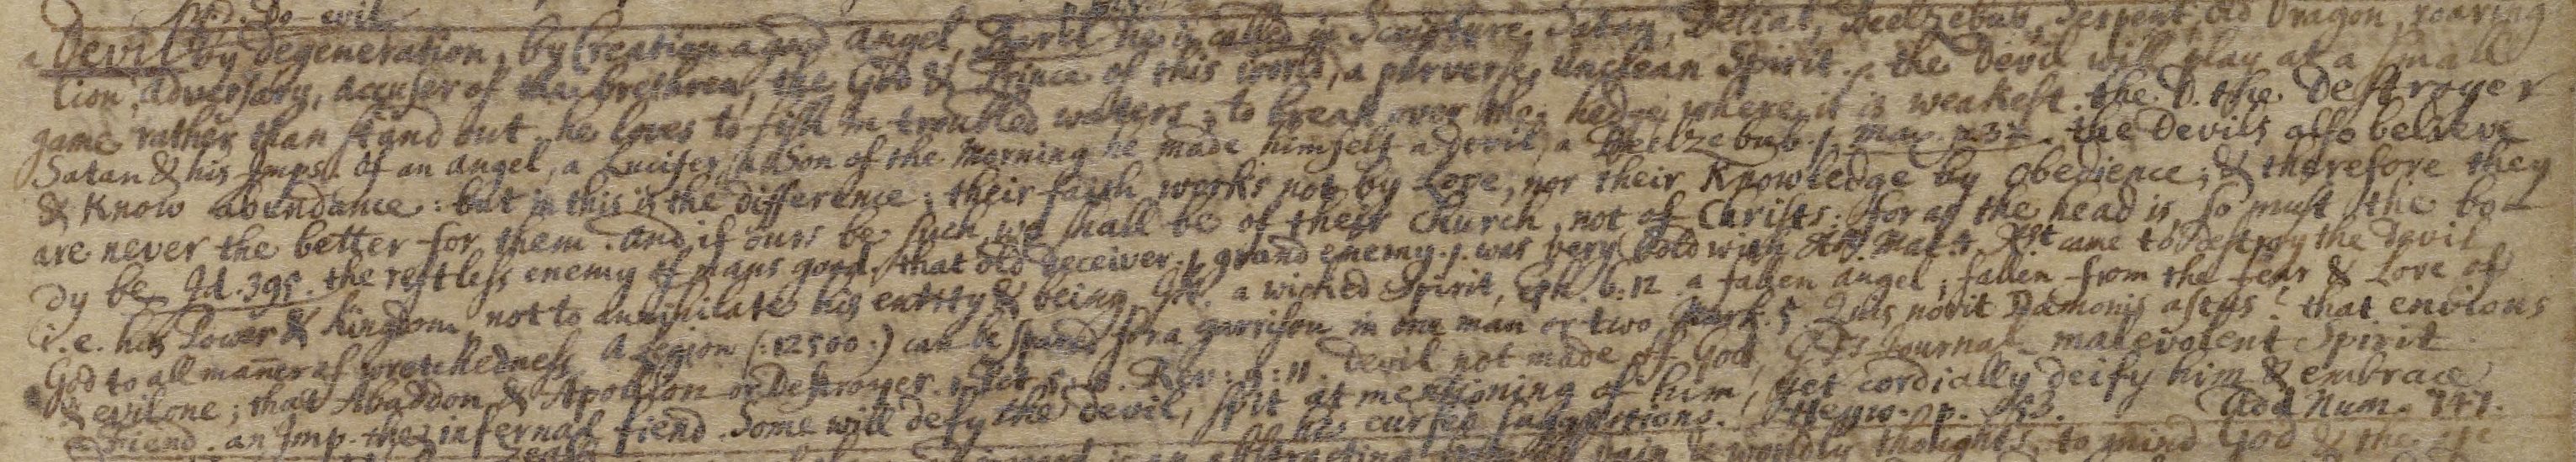 i.e. Do-evil
a Devil by degeneration, by Creation a good angel, he is called in Scripture, Satan, Belial, Beelzebub, Serpent, old Dragon, roaring
Lion, adversary, accuser of the brethren, the God & Prince of this world, a perverse, unclean Spirit. the Devil will play at a small
game rather than stand out. he loves to fish in troubled waters; to break over the hedge where it is weakest. the D. the Destroyer
Satan & his Imps. Of an angel, a Lucifer, a Son of the morning he made himself a devil, a Beelzebub. the Devils also believe
& know abundance: but in this is the difference; their faith works not by Love, nor their Knowledge by obedience; & therefore they
are never the better for them. and if ours be such, we shall be of their Church, not of Christs: for as the head is, so must the bo-
dy be. Id. 395. the restless enemy of mans good. that old deceiver. grand enemy. was very bold with Mat. 4. Xst came to destroy the devil
i.e. his Power & kingdom, not to annihilate his entity & being. a wicked Spirit, Eph. 6:12. a fallen angel; fallen from the fear & Love of
God to all maner of wretchedness. A Legion (:12500:) can be spared for a garrison in one man or two Mark. 5. Quis novit Dæmonis astus? that envious
& evil one; that Abaddon & Apollyon or Destroyer. Rev: 9:11. Devil not made of God, Journal. malevolent Spirit.
a fiend. an Imp. the infernal fiend. Some will defy the devil, spit at mentioning of him, yet cordially deify him & embrace
his cursed suggestions. Add Num. 741.
thoughts, to mind God & the